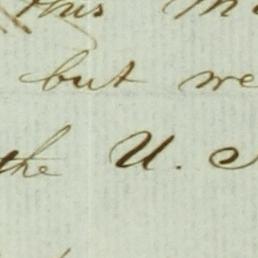 this
but we
the U. S